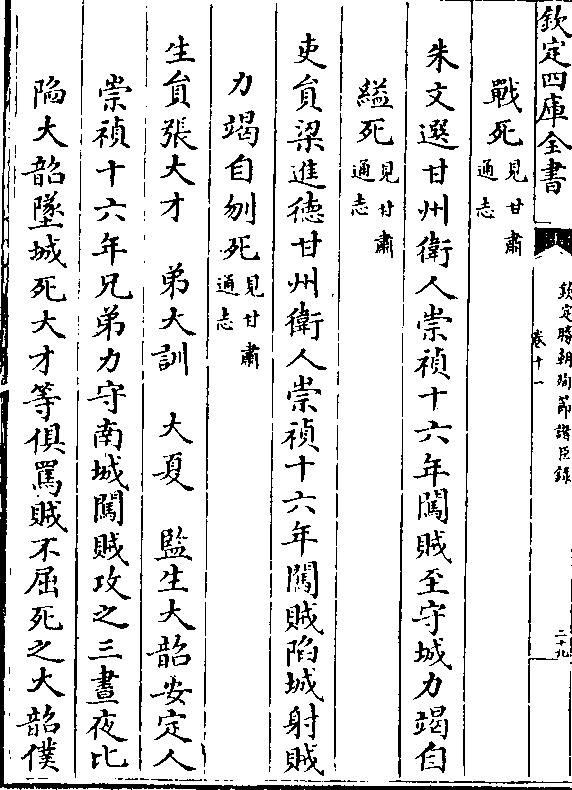 欽定四庫全書
欽定勝朝殉節諸臣錄
卷十一
二十九
戰死見甘肅
通志
朱文選甘州衛人崇禎十六年闖賊至守城力竭自
縊死見甘肅
通志
吏員梁進德甘州衛人崇禎十六年闖賊陷城射賊
力竭自刎死見甘肅
通志
生員張大才　弟大訓　大夏　監生大韶安定人
崇禎十六年兄弟力守南城闖賊攻之三晝夜比
陷大韶墜城死大才等俱罵賊不屈死之大韶僕